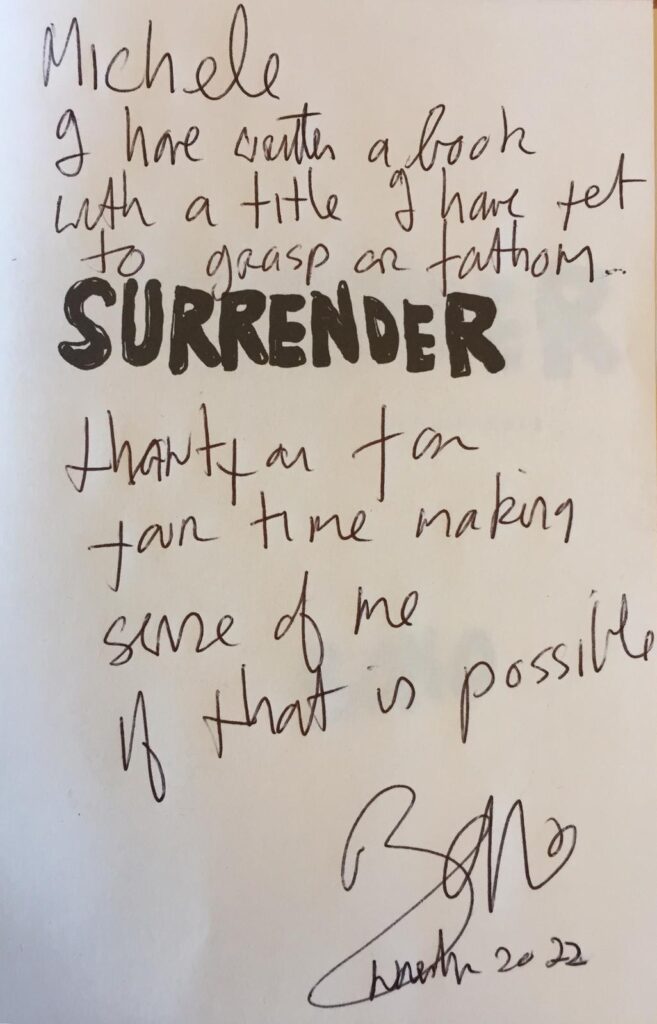 Michele
I have written a book
with a title I have yet
to grasp or fathom...
SURRENDER
thank you for
your time making
sense of me
if that is possible
Bono
2022